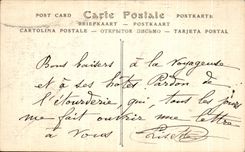 POST CARD Carte Postale POSTKARTE
BRIEFKAART — POSTKAART
CARTOLINA POSTALE — ОТКРЫТОЕ ПИСЬМО — TARJETA POSTAL
Bons baisers à la voyageuse
et à ses hôtes. Pardon de
l'étourderie, qui, tous les jours
me fait ouvrir une lettre
à vous